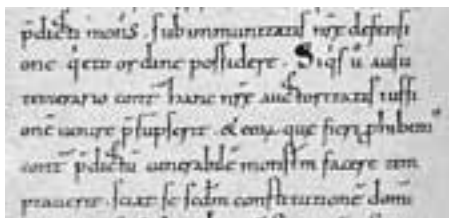 p̄dicti monſ. ſub immunitatiſ nr̄e defenſi
one q̄eto ordine poſſidere. Siq̄ſ ū auſu
temerario cont̄ hanc nr̄e auctoritatiſ iuſſi
onē uenire p̄ſupſerit. & ea, que fieri p̱hibem
cont̄ p̄dictū uenerabilē monſt̄m facere tem
ptauerit. ſciat ſe ſcd̄m conſtitutionē domi